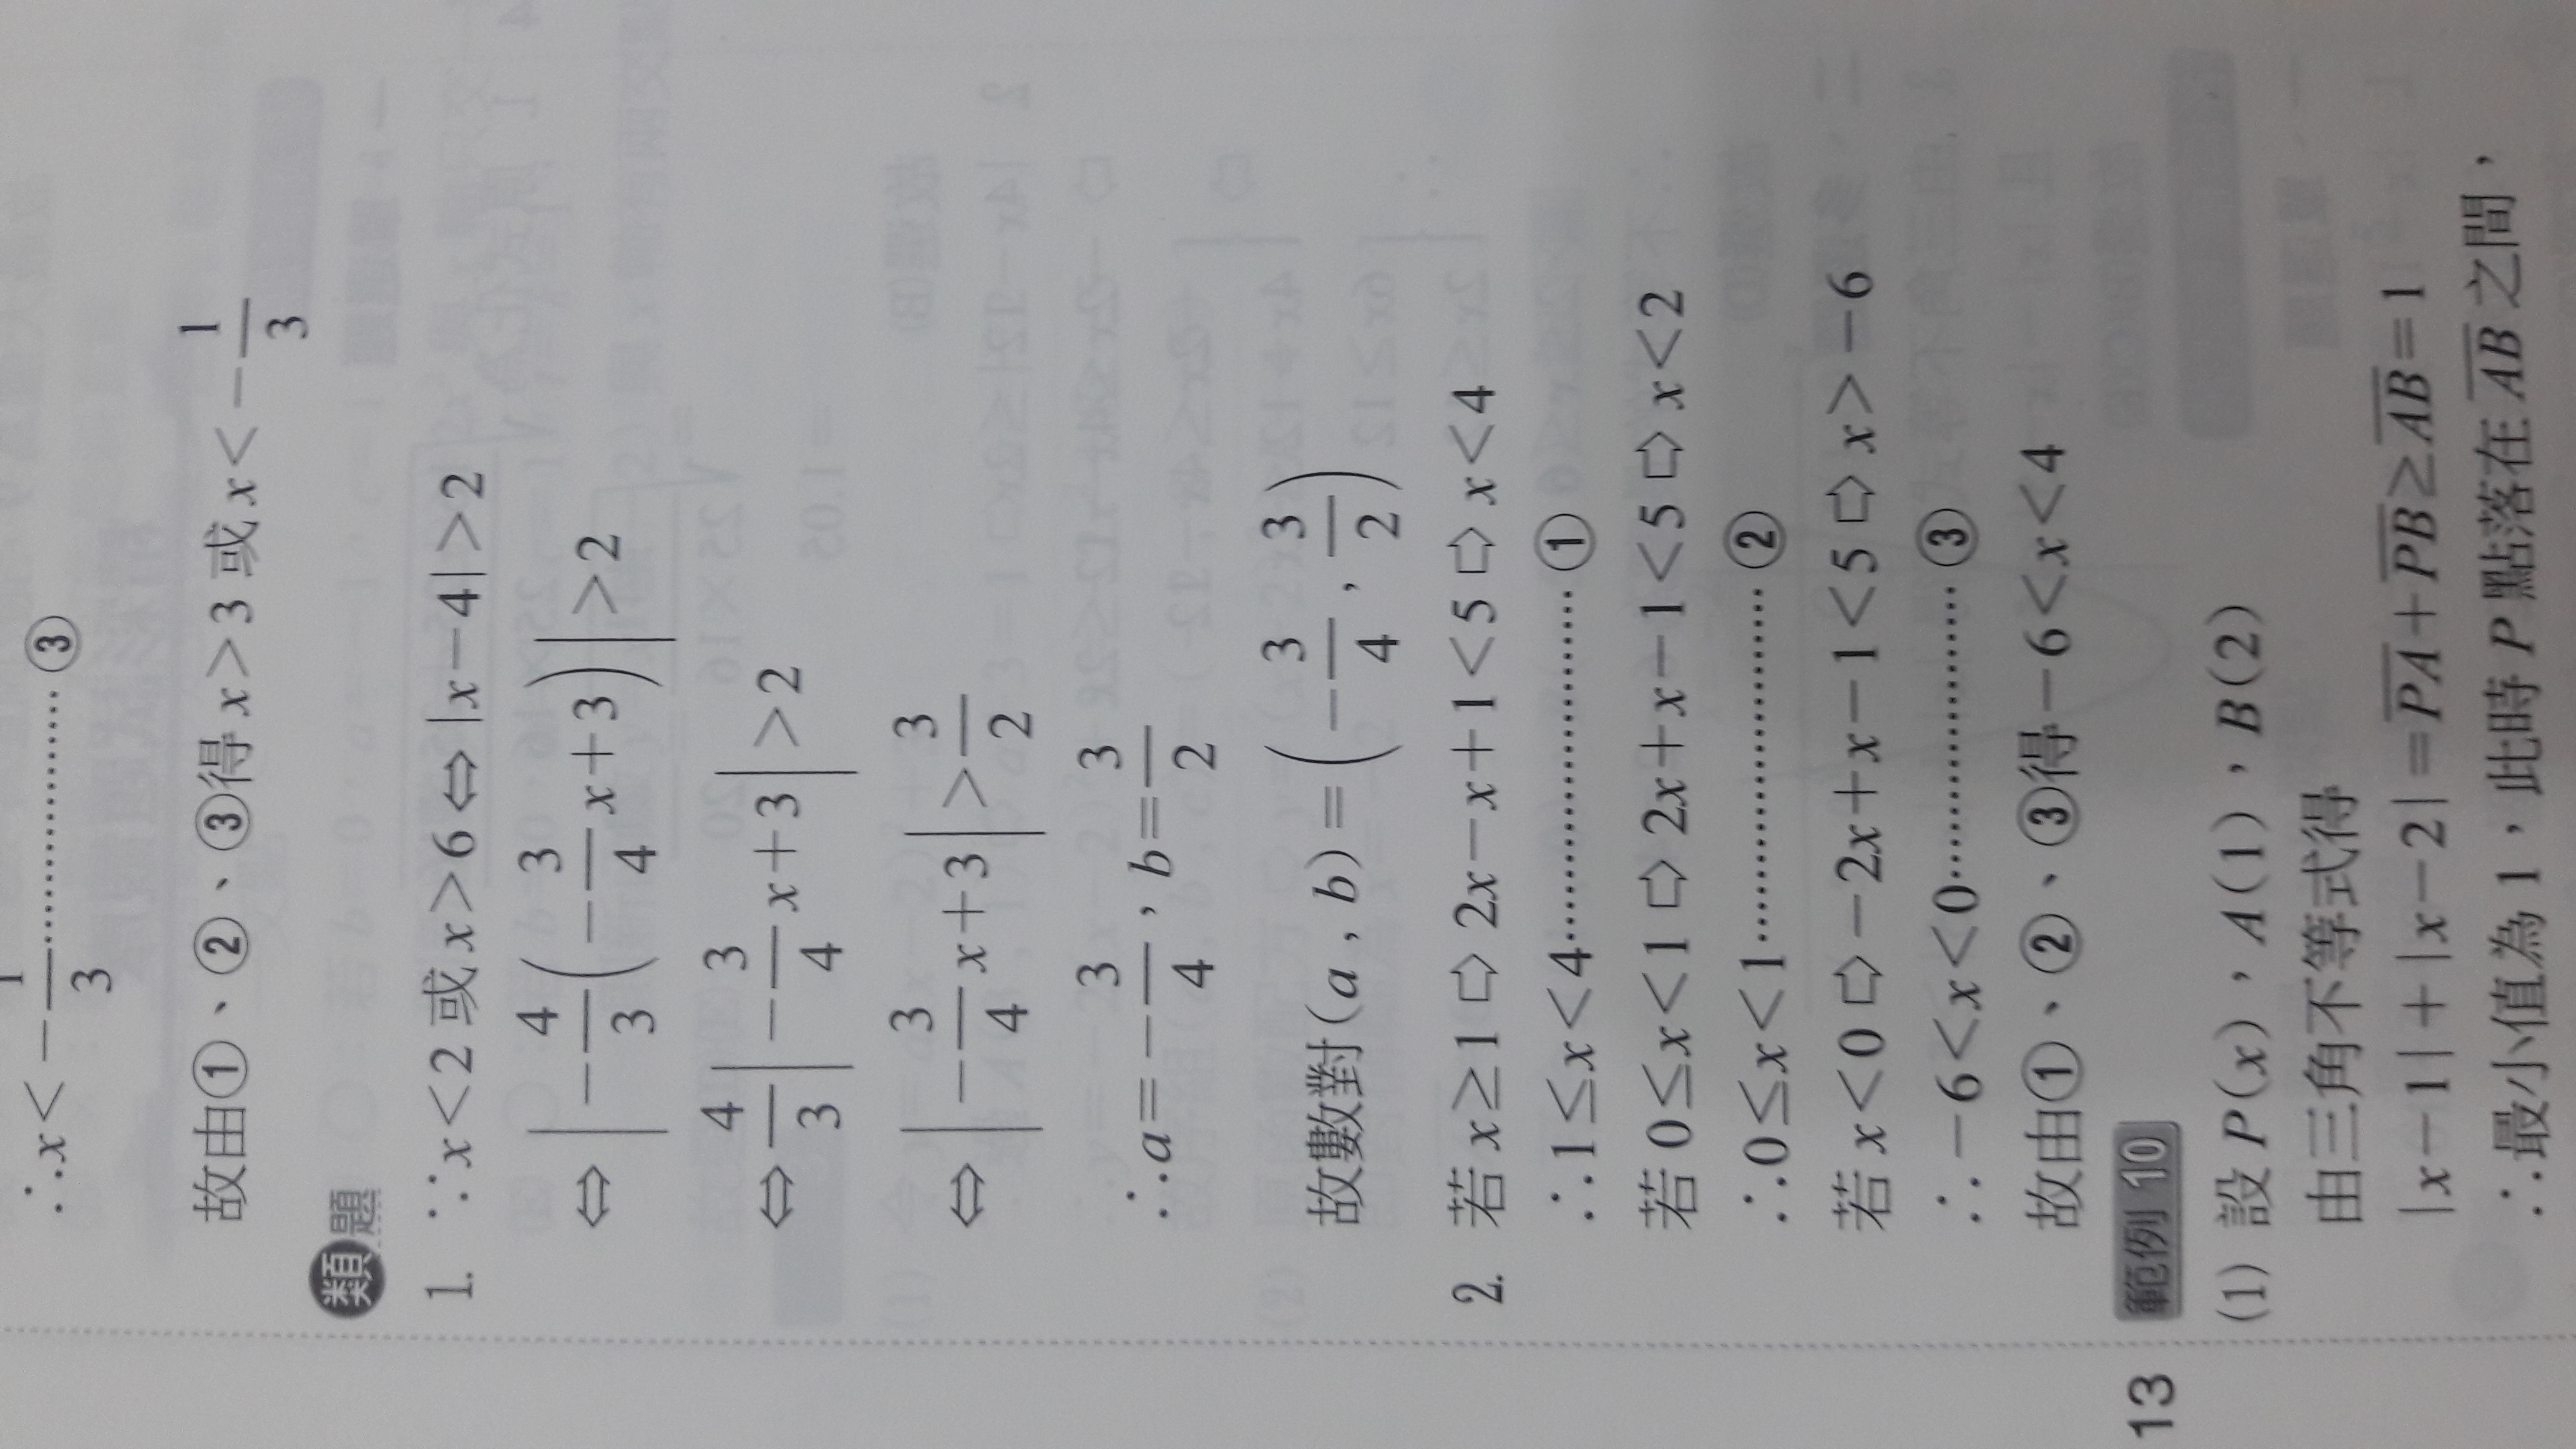 ∴x<-1/3……………③
故由①、②、③得 x>3 或 x<-1/3
類題
1. ∵x<2 或 x>6⇔|x-4|>2
⇔|-4/3(-3/4x+3)|>2
⇔4/3|-3/4x+3|>2
⇔|-3/4x+3|>3/2
∴a=-3/4,b=3/2
故數對(a,b)=(-3/4,3/2)
2. 若 x≥1⇨2x-x+1<5⇨x<4
∴1≤x<4……………①
若 0≤x<1⇨2x+x-1<5⇨x<2
∴0≤x<1……………②
若 x<0⇨-2x+x-1<5⇨x>-6
∴-6<x<0……………③
故由①、②、③得-6<x<4
範例 10
(1) 設 P(x),A(1),B(2)
由三角不等式得
|x-1|+|x-2|=PA+PB≥AB=1
∴最小值為 1,此時 P 點落在 AB 之間,
13